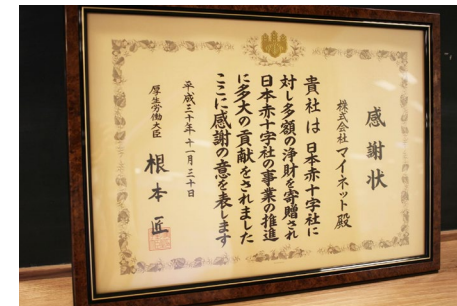 感謝状
株式会社マイネット殿
貴社は日本赤十字社に
対し多額の浄財を寄贈され
日本赤十字社の事業の推進
に多大の貢献をされました
ここに感謝の意を表します
平成三十年十一月三十日
厚生労働大臣 根本匠